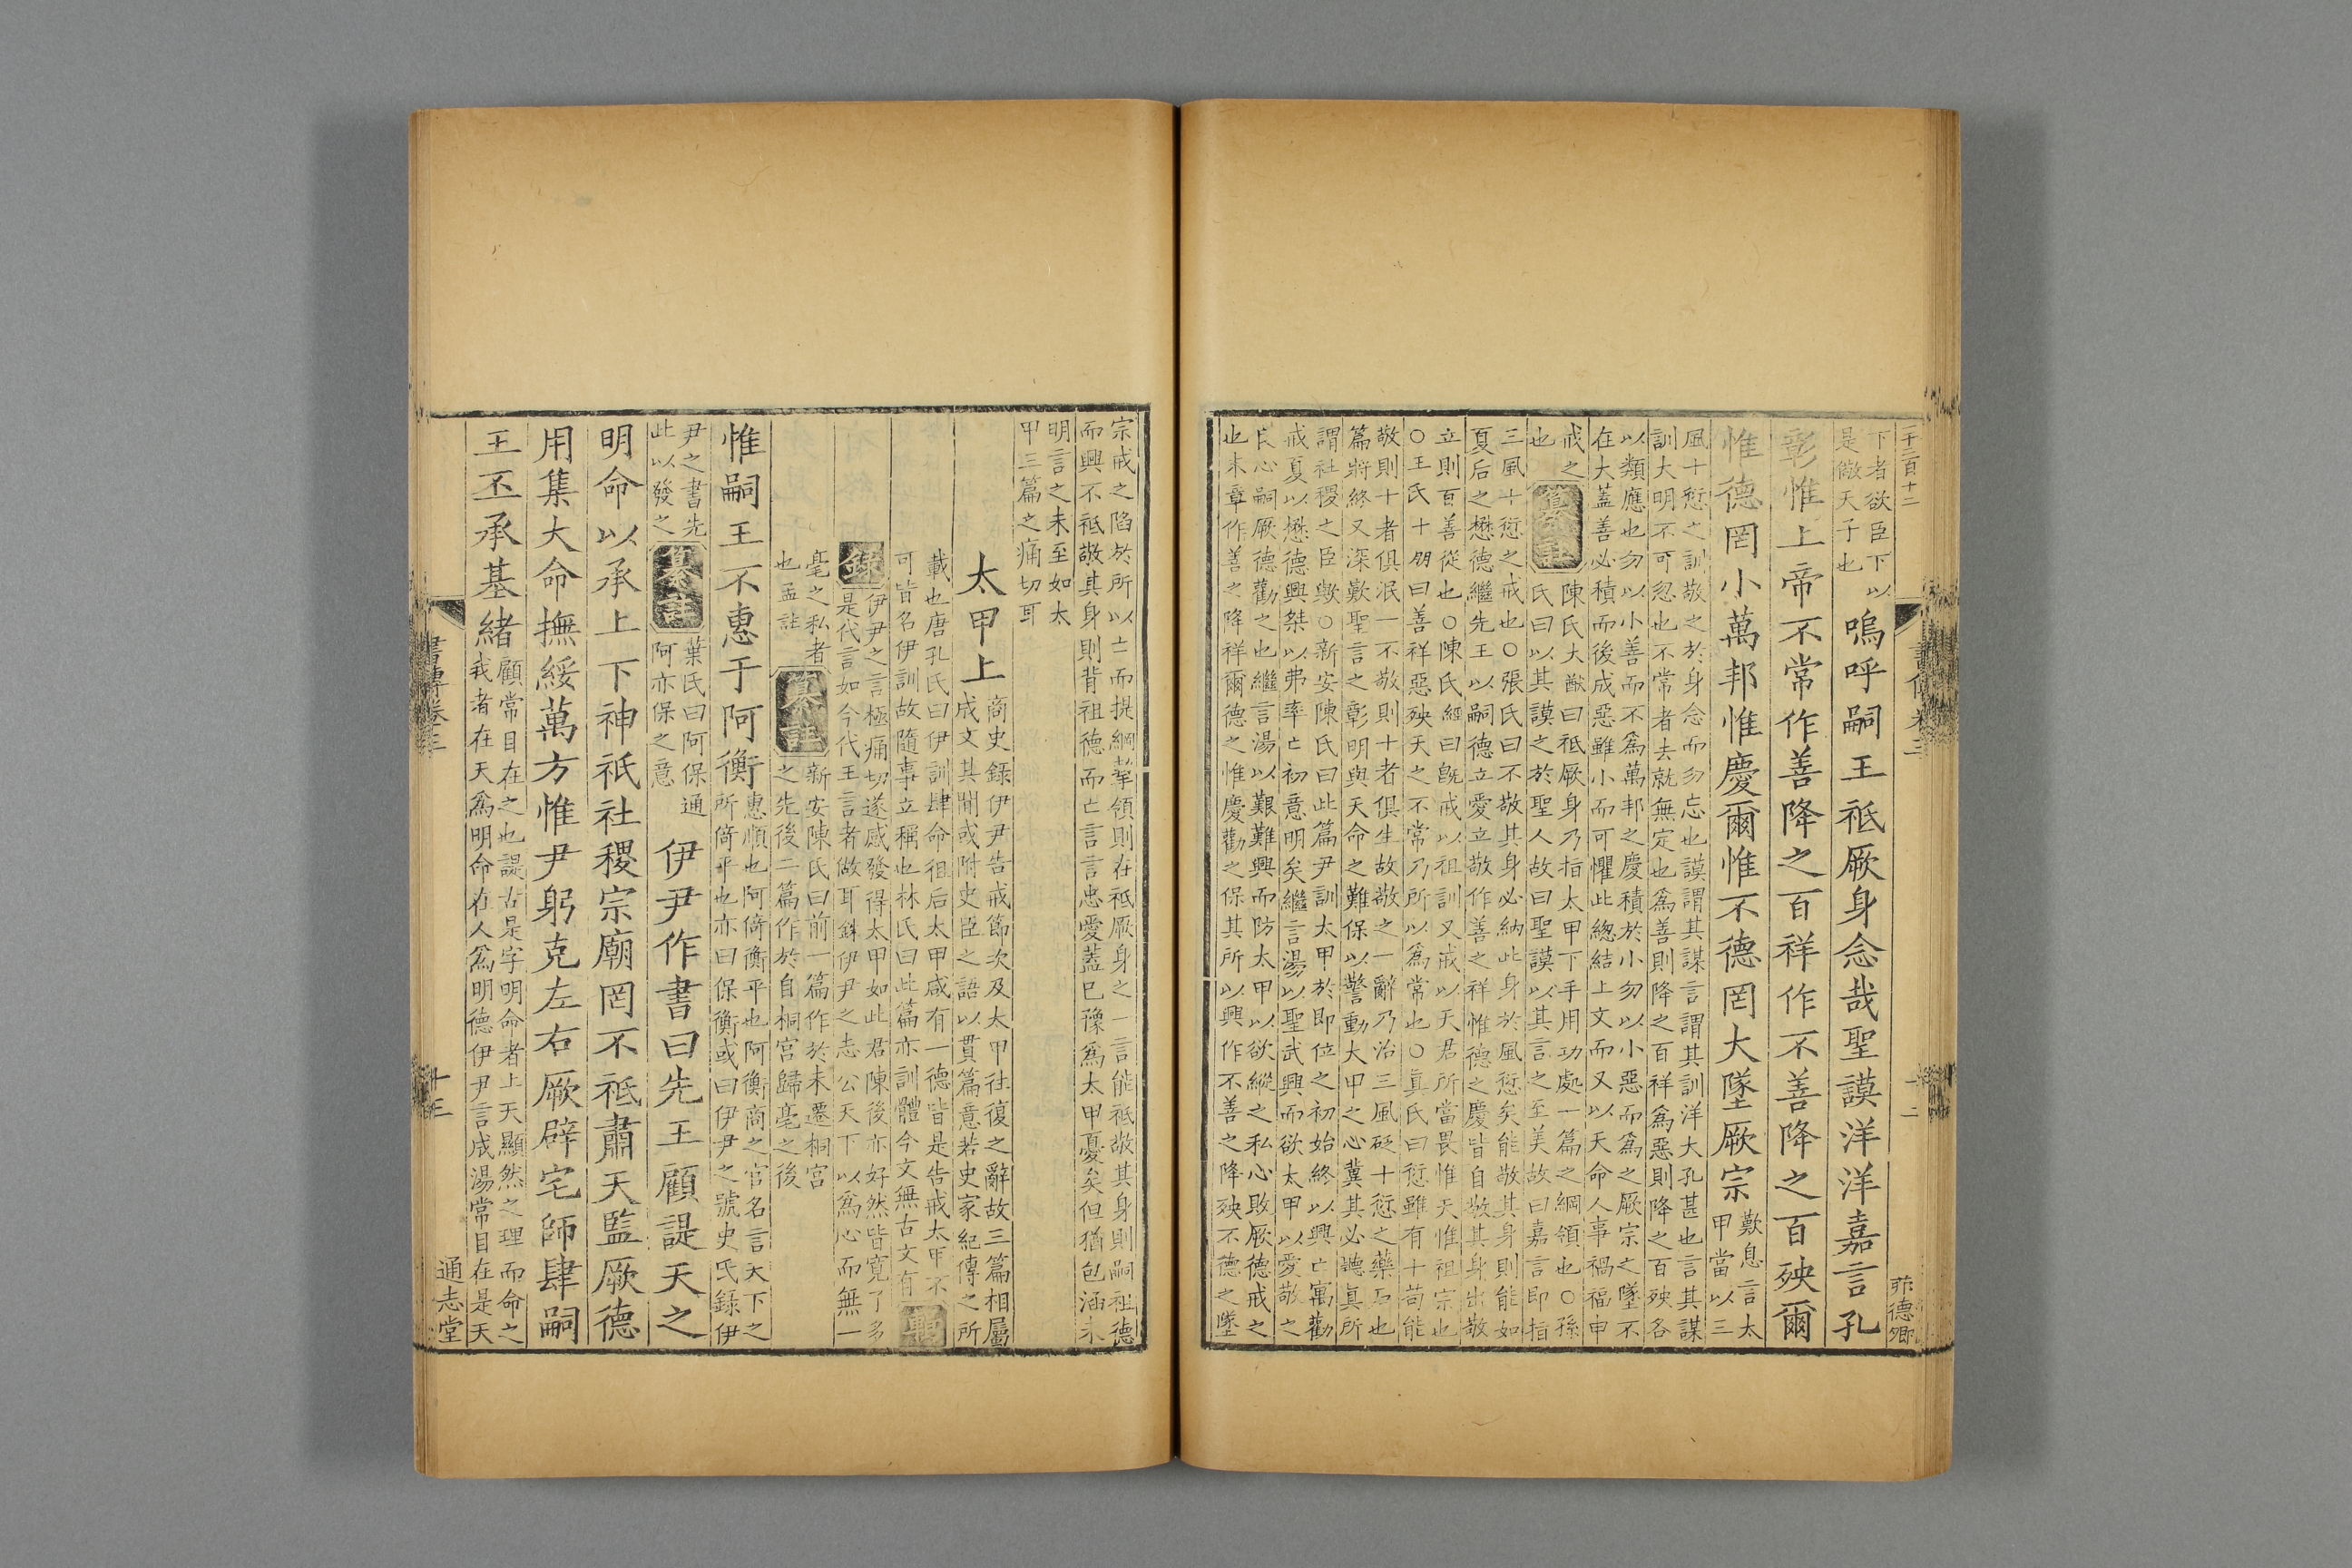 一千三百十二 書傳卷三 十二
下者欲臣下以
是儆天子也
嗚呼嗣王祗厥身念哉聖謨洋洋嘉言孔
彰惟上帝不常作善降之百祥作不善降之百殃爾
惟德罔小萬邦惟慶爾惟不德罔大墜厥宗
歎息言太
甲當以三
風十愆之訓敬之於身念而勿忘也謨謂其謀言謂其訓洋大孔甚也言其謀
訓大明不可忽也不常者去就無定也爲善則降之百祥爲惡則降之百殃各
以類應也勿以小善而不爲萬邦之慶積於小勿以小惡而爲之厥宗之墜不
在大蓋善必積而後成惡雖小而可懼此總結上文而又以天命人事禍福申
戒之
也
纂註
陳氏大猷曰祗厥身乃指太甲下手用功處一篇之綱領也○孫
氏曰以其謨之於聖人故曰聖謨以其言之至美故曰嘉言即指
三風十愆之戒也○張氏曰不敬其身必納此身於風愆矣能敬其身則能如
夏后之懋德繼先王以嗣德立愛立敬作善之祥惟德之慶皆自敬其身出敬
立則百善從也○陳氏經曰旣戒以祖訓又戒以天君所當畏惟天惟祖宗也
○王氏十朋曰善祥惡殃天之不常乃所以爲常也○眞氏曰愆雖有十苟能
敬則十者俱泯一不敬則十者俱生故敬之一辭乃治三風砭十愆之藥石也
篇將終又深歎聖言之彰明與天命之難保以警動太甲之心冀其必聽眞所
謂社稷之臣歟○新安陳氏曰此篇尹訓太甲於即位之初始終以興亡寓勸
戒夏以懋德興桀以弗率亡初意明矣繼言湯以聖武興而欲太甲以愛敬之
良心嗣厥德勸之也繼言湯以艱難興而防太甲以欲縱之私心敗厥德戒之
也末章作善之降祥爾德之惟慶勸之保其所以興作不善之降殃不德之墜
宗戒之陷於所以亡而提綱挈領則在祗厥身之一言能祗敬其身則嗣祖德
而興不祗敬其身則背祖德而亡言言忠愛蓋已豫爲太甲憂矣但猶包涵未
明言之未至如太
甲三篇之痛切耳
太甲上
商史錄伊尹告戒節次及太甲往復之辭故三篇相屬
成文其間或附史臣之語以貫篇意若史家紀傳之所
載也唐孔氏曰伊訓肆命徂后太甲咸有一德皆是告戒太甲不
可皆名伊訓故隨事立稱也林氏曰此篇亦訓體今文無古文有
輯
錄
伊尹之言極痛切遂感發得太甲如此君陳後亦好然皆寛了多
是代言如今代王言者做耳斜伊尹之志公天下以爲心而無一
毫之私者
也孟註
纂註
新安陳氏曰前一篇作於未遷桐宮
之先後二篇作於自桐宮歸亳之後
惟嗣王不惠于阿衡
惠順也阿倚衡平也阿衡商之官名言天下之
所倚平也亦曰保衡或曰伊尹之號史氏錄伊
尹之書先
此以發之
纂註
葉氏曰阿保通
阿亦保之意
伊尹作書曰先王顧諟天之
明命以承上下神祇社稷宗廟罔不祗肅天監厥德
用集大命撫綏萬方惟尹躬克左右厥辟宅師肆嗣
王丕承基緒
顧常目在之也諟古是字明命者上天顯然之理而命之
我者在天爲明命在人爲明德伊尹言成湯常目在是天
書傳卷三 十三 通志堂